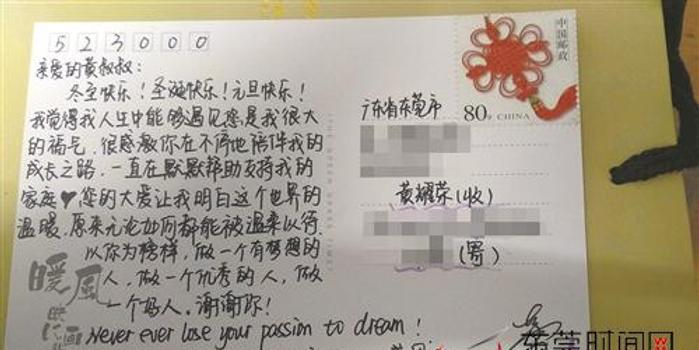 523000
亲爱的黄叔叔:
冬至快乐!圣诞快乐!元旦快乐!
我觉得我人生中能够遇见您是我很大
的福气.很感激你在不停地陪伴我的
成长之路.一直在默默帮助支持我的
家庭♥您的大爱让我明白这个世界的
温暖.原来无论如何都能被温柔以待.
以你为榜样,做一个有梦想的
人,做一个优秀的人,做
一个好人.谢谢你!
Never ever lose your passion to dream!
暖风
中国邮政
80分 CHINA
广东省东莞市
黄耀荣(收)
(寄)
东莞时间网